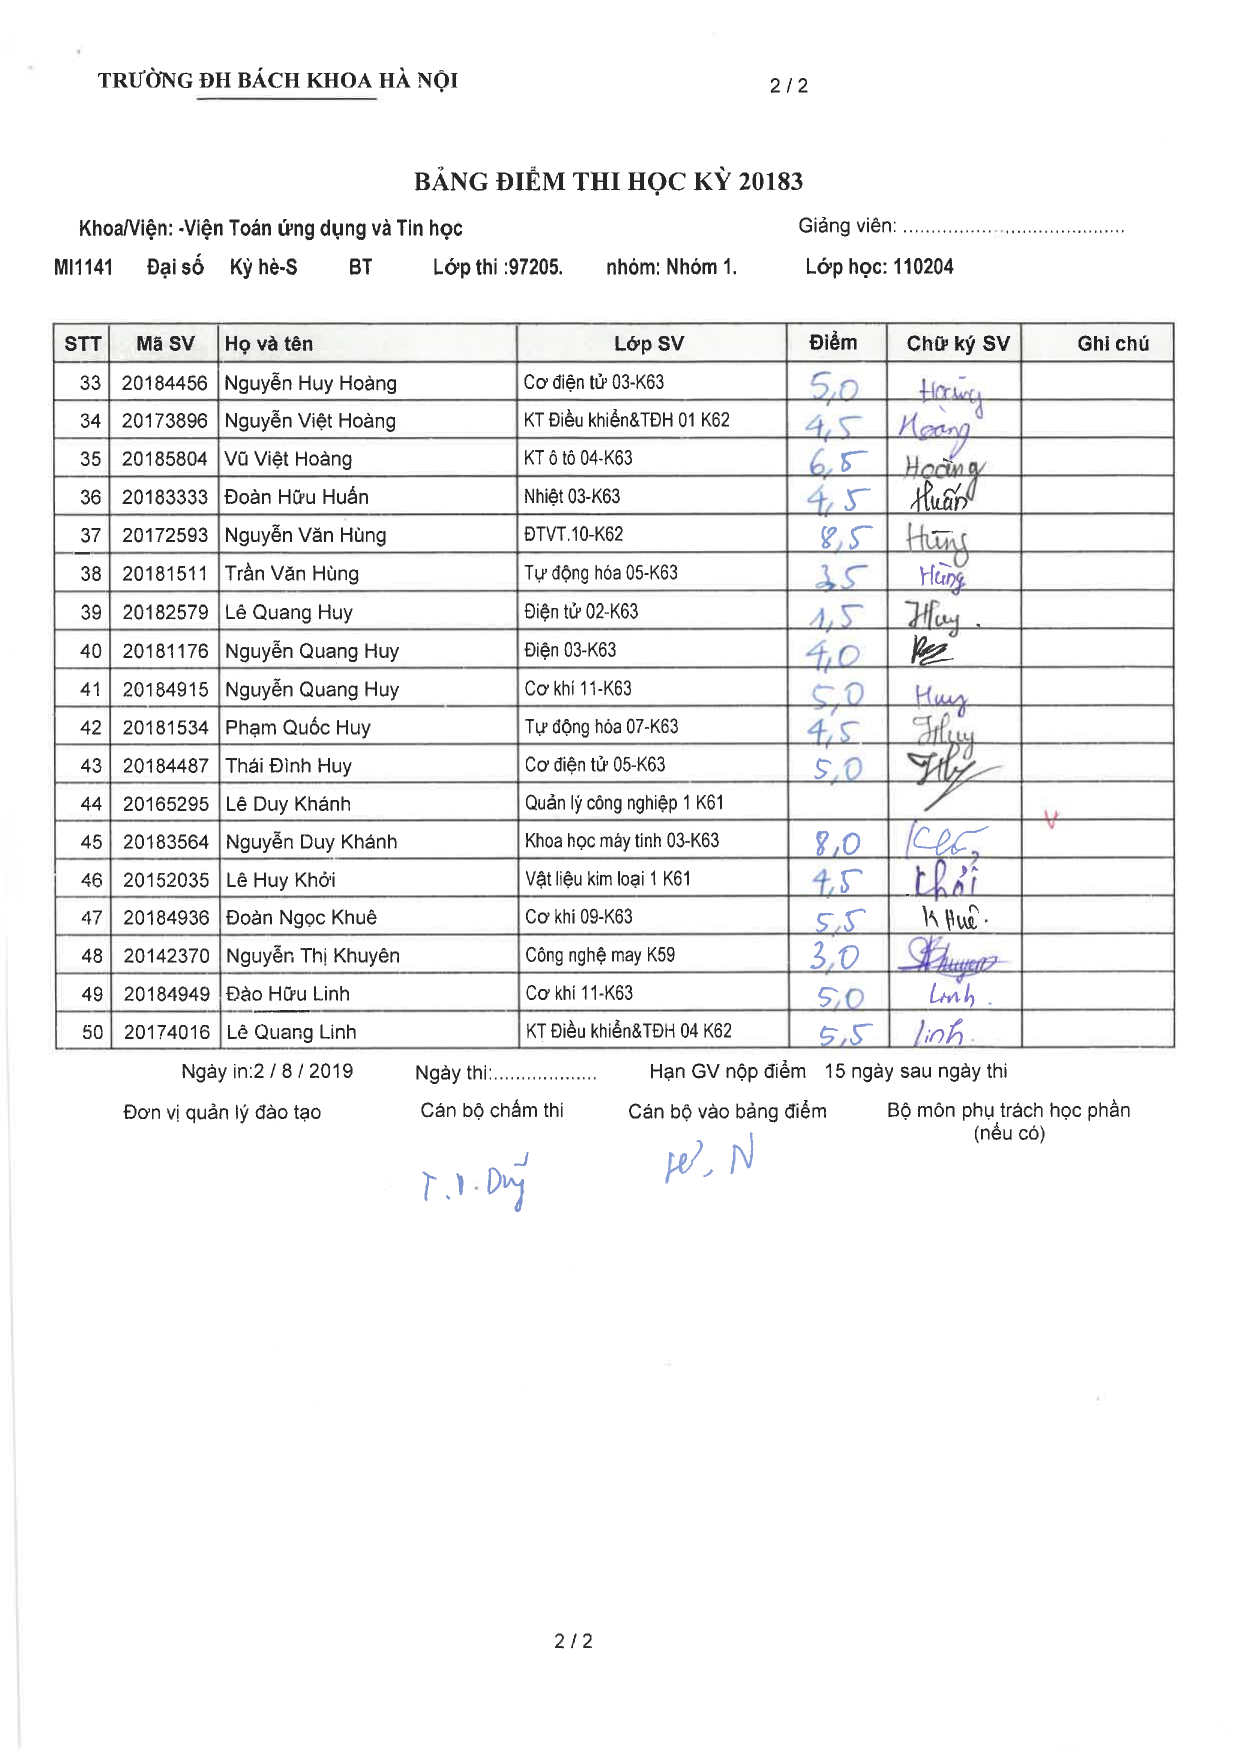 TRƯỜNG ĐH BÁCH KHOA HÀ NỘI 2 / 2
BẢNG ĐIỂM THI HỌC KỲ 20183
Khoa/Viện: -Viện Toán ứng dụng và Tin học Giảng viên: ........................................
MI1141 Đại số Kỳ hè-S BT Lớp thi :97205. nhóm: Nhóm 1. Lớp học: 110204
STT Mã SV Họ và tên Lớp SV Điểm Chữ ký SV Ghi chú
33 20184456 Nguyễn Huy Hoàng Cơ điện tử 03-K63 5,0 Hoàng
34 20173896 Nguyễn Việt Hoàng KT Điều khiển&TĐH 01 K62 4,5 Hoàng
35 20185804 Vũ Việt Hoàng KT ô tô 04-K63 6,5 Hoàng
36 20183333 Đoàn Hữu Huấn Nhiệt 03-K63 4,5 Huấn
37 20172593 Nguyễn Văn Hùng ĐTVT.10-K62 8,5 Hùng
38 20181511 Trần Văn Hùng Tự động hóa 05-K63 3,5 Hùng
39 20182579 Lê Quang Huy Điện tử 02-K63 1,5 Huy.
40 20181176 Nguyễn Quang Huy Điện 03-K63 4,0
41 20184915 Nguyễn Quang Huy Cơ khí 11-K63 5,0 Huy
42 20181534 Phạm Quốc Huy Tự động hóa 07-K63 4,5 Huy
43 20184487 Thái Đình Huy Cơ điện tử 05-K63 5,0 Huy
44 20165295 Lê Duy Khánh Quản lý công nghiệp 1 K61 V
45 20183564 Nguyễn Duy Khánh Khoa học máy tính 03-K63 8,0
46 20152035 Lê Huy Khởi Vật liệu kim loại 1 K61 4,5 Khởi
47 20184936 Đoàn Ngọc Khuê Cơ khí 09-K63 5,5 Khuê.
48 20142370 Nguyễn Thị Khuyên Công nghệ may K59 3,0 Khuyen
49 20184949 Đào Hữu Linh Cơ khí 11-K63 5,0 Linh.
50 20174016 Lê Quang Linh KT Điều khiển&TĐH 04 K62 5,5 linh.
Ngày in:2 / 8 / 2019 Ngày thi:................... Hạn GV nộp điểm 15 ngày sau ngày thi
Đơn vị quản lý đào tạo Cán bộ chấm thi Cán bộ vào bảng điểm Bộ môn phụ trách học phần
(nếu có)
2 / 2